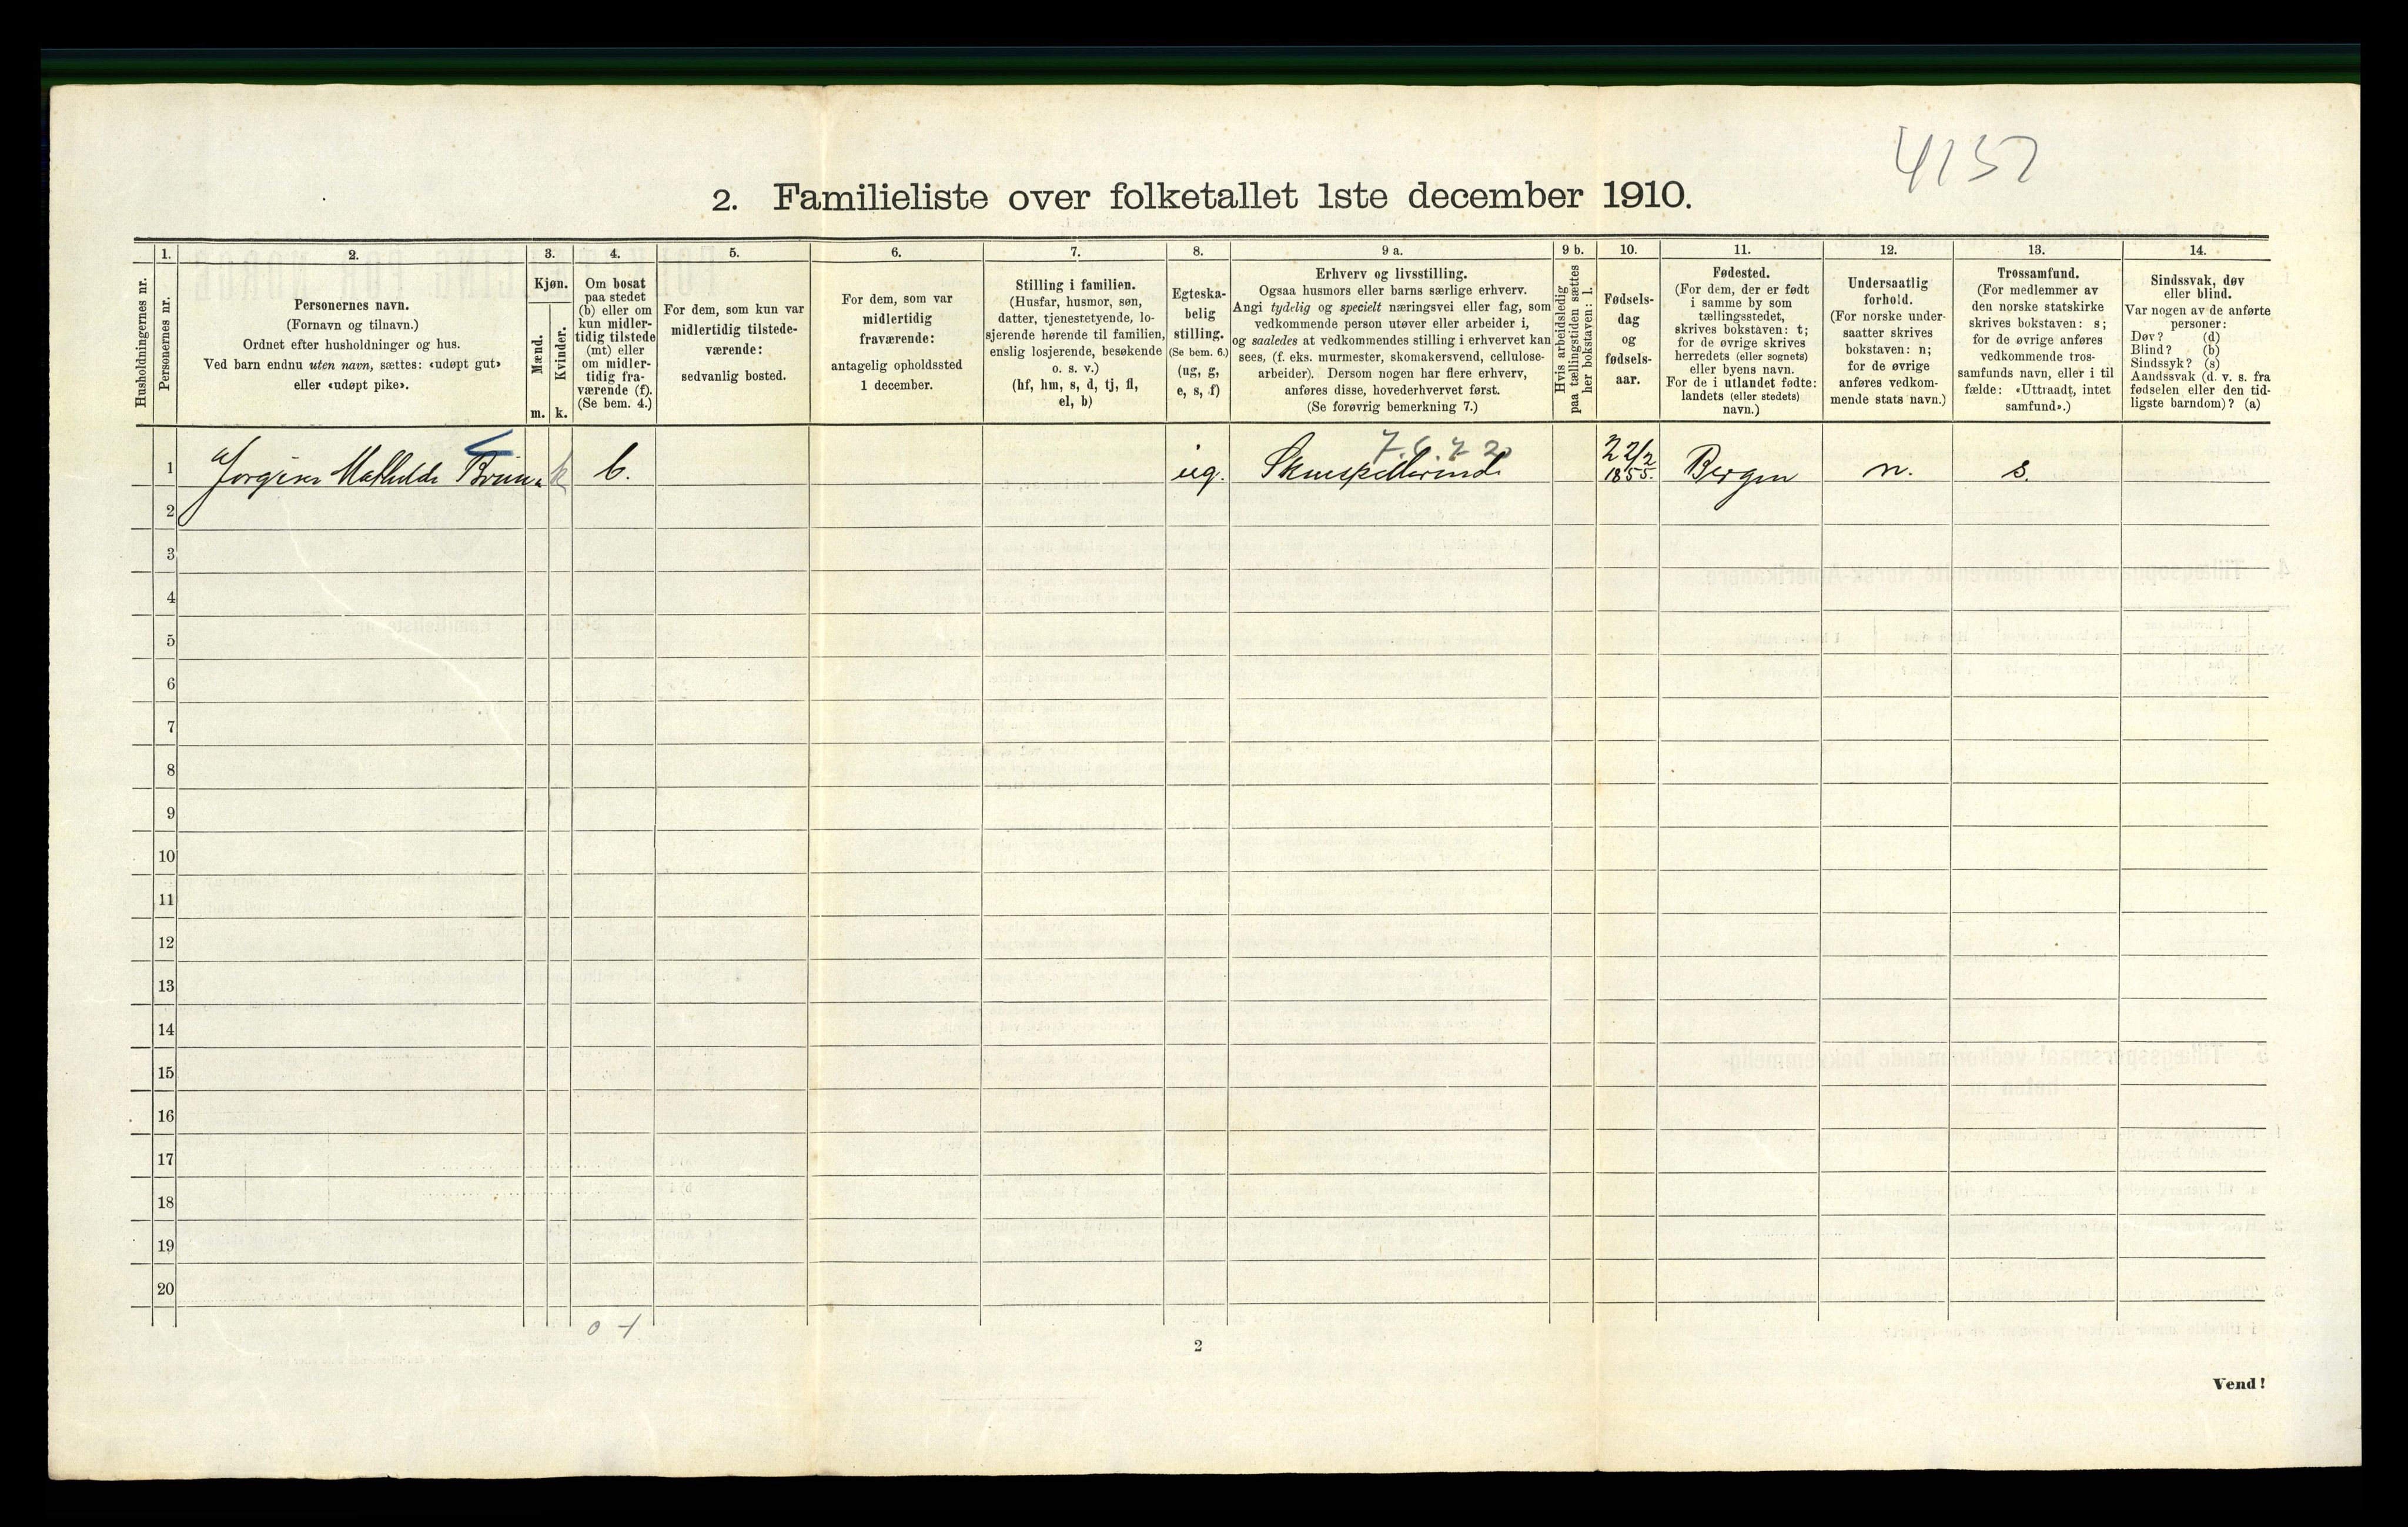 4157
2. Familieliste over folketallet 1ste december 1910.
Husholdningernes nr.
1.
Personernes nr.
2.
Personernes navn.
(Fornavn og tilnavn.)
Ordnet efter husholdninger og hus.
Ved barn endnu uten navn, sættes: «udøpt gut»
eller «udøpt pike».
3.
Kjøn.
Mænd.
m.
Kvinder.
k.
4.
Om bosat
paa stedet
(b) eller om
kun midler-
tidig tilstede
(mt) eller
om midler-
tidig fra-
værende (f).
(Se bem. 4.)
5.
For dem, som kun var
midlertidig tilstede-
værende:
sedvanlig bosted.
6.
For dem, som var
midlertidig
fraværende:
antagelig opholdssted
1 december.
7.
Stilling i familien.
(Husfar, husmor, søn,
datter, tjenestetyende, lo-
sjerende hørende til familien,
enslig losjerende, besøkende
o. s. v.)
(hf, hm, s, d, tj, fl,
el, b)
8.
Egteska-
belig
stilling.
(Se bem. 6.)
(ug, g,
e, s, f)
9 a.
Erhverv og livsstilling.
Ogsaa husmors eller barns særlige erhverv.
Angi tydelig og specielt næringsvei eller fag, som
vedkommende person utøver eller arbeider i,
og saaledes at vedkommendes stilling i erhvervet kan
sees, (f. eks. murmester, skomakersvend, cellulose-
arbeider). Dersom nogen har flere erhverv,
anføres disse, hovederhvervet først.
(Se forøvrig bemerkning 7.)
9 b.
Hvis arbeidsledig
paa tællingstiden sættes
her bokstaven: l.
10.
Fødsels-
dag
og
fødsels-
aar.
11.
Fødested.
(For dem, der er født
i samme by som
tællingsstedet,
skrives bokstaven: t;
for de øvrige skrives
herredets (eller sognets)
eller byens navn.
For de i utlandet fødte:
landets (eller stedets)
navn.)
12.
Undersaatlig
forhold.
(For norske under-
saatter skrives
bokstaven: n;
for de øvrige
anføres vedkom-
mende stats navn.)
13.
Trossamfund.
(For medlemmer av
den norske statskirke
skrives bokstaven: s;
for de øvrige anføres
vedkommende tros-
samfunds navn, eller i til
fælde: «Uttraadt, intet
samfund».)
14.
Sindssvak, døv
eller blind.
Var nogen av de anførte
personer:
Døv? (d)
Blind? (b)
Sindssyk? (s)
Aandssvak (d. v. s. fra
fødselen eller den tid-
ligste barndom)? (a)
1 Mathilde k b. ug. Skuespillerinde 22/2 1855. Bergen n. s.
2
3
4
5
6
7
8
9
10
11
12
13
14
15
16
17
18
19
20
0 - 1
2
Vend!